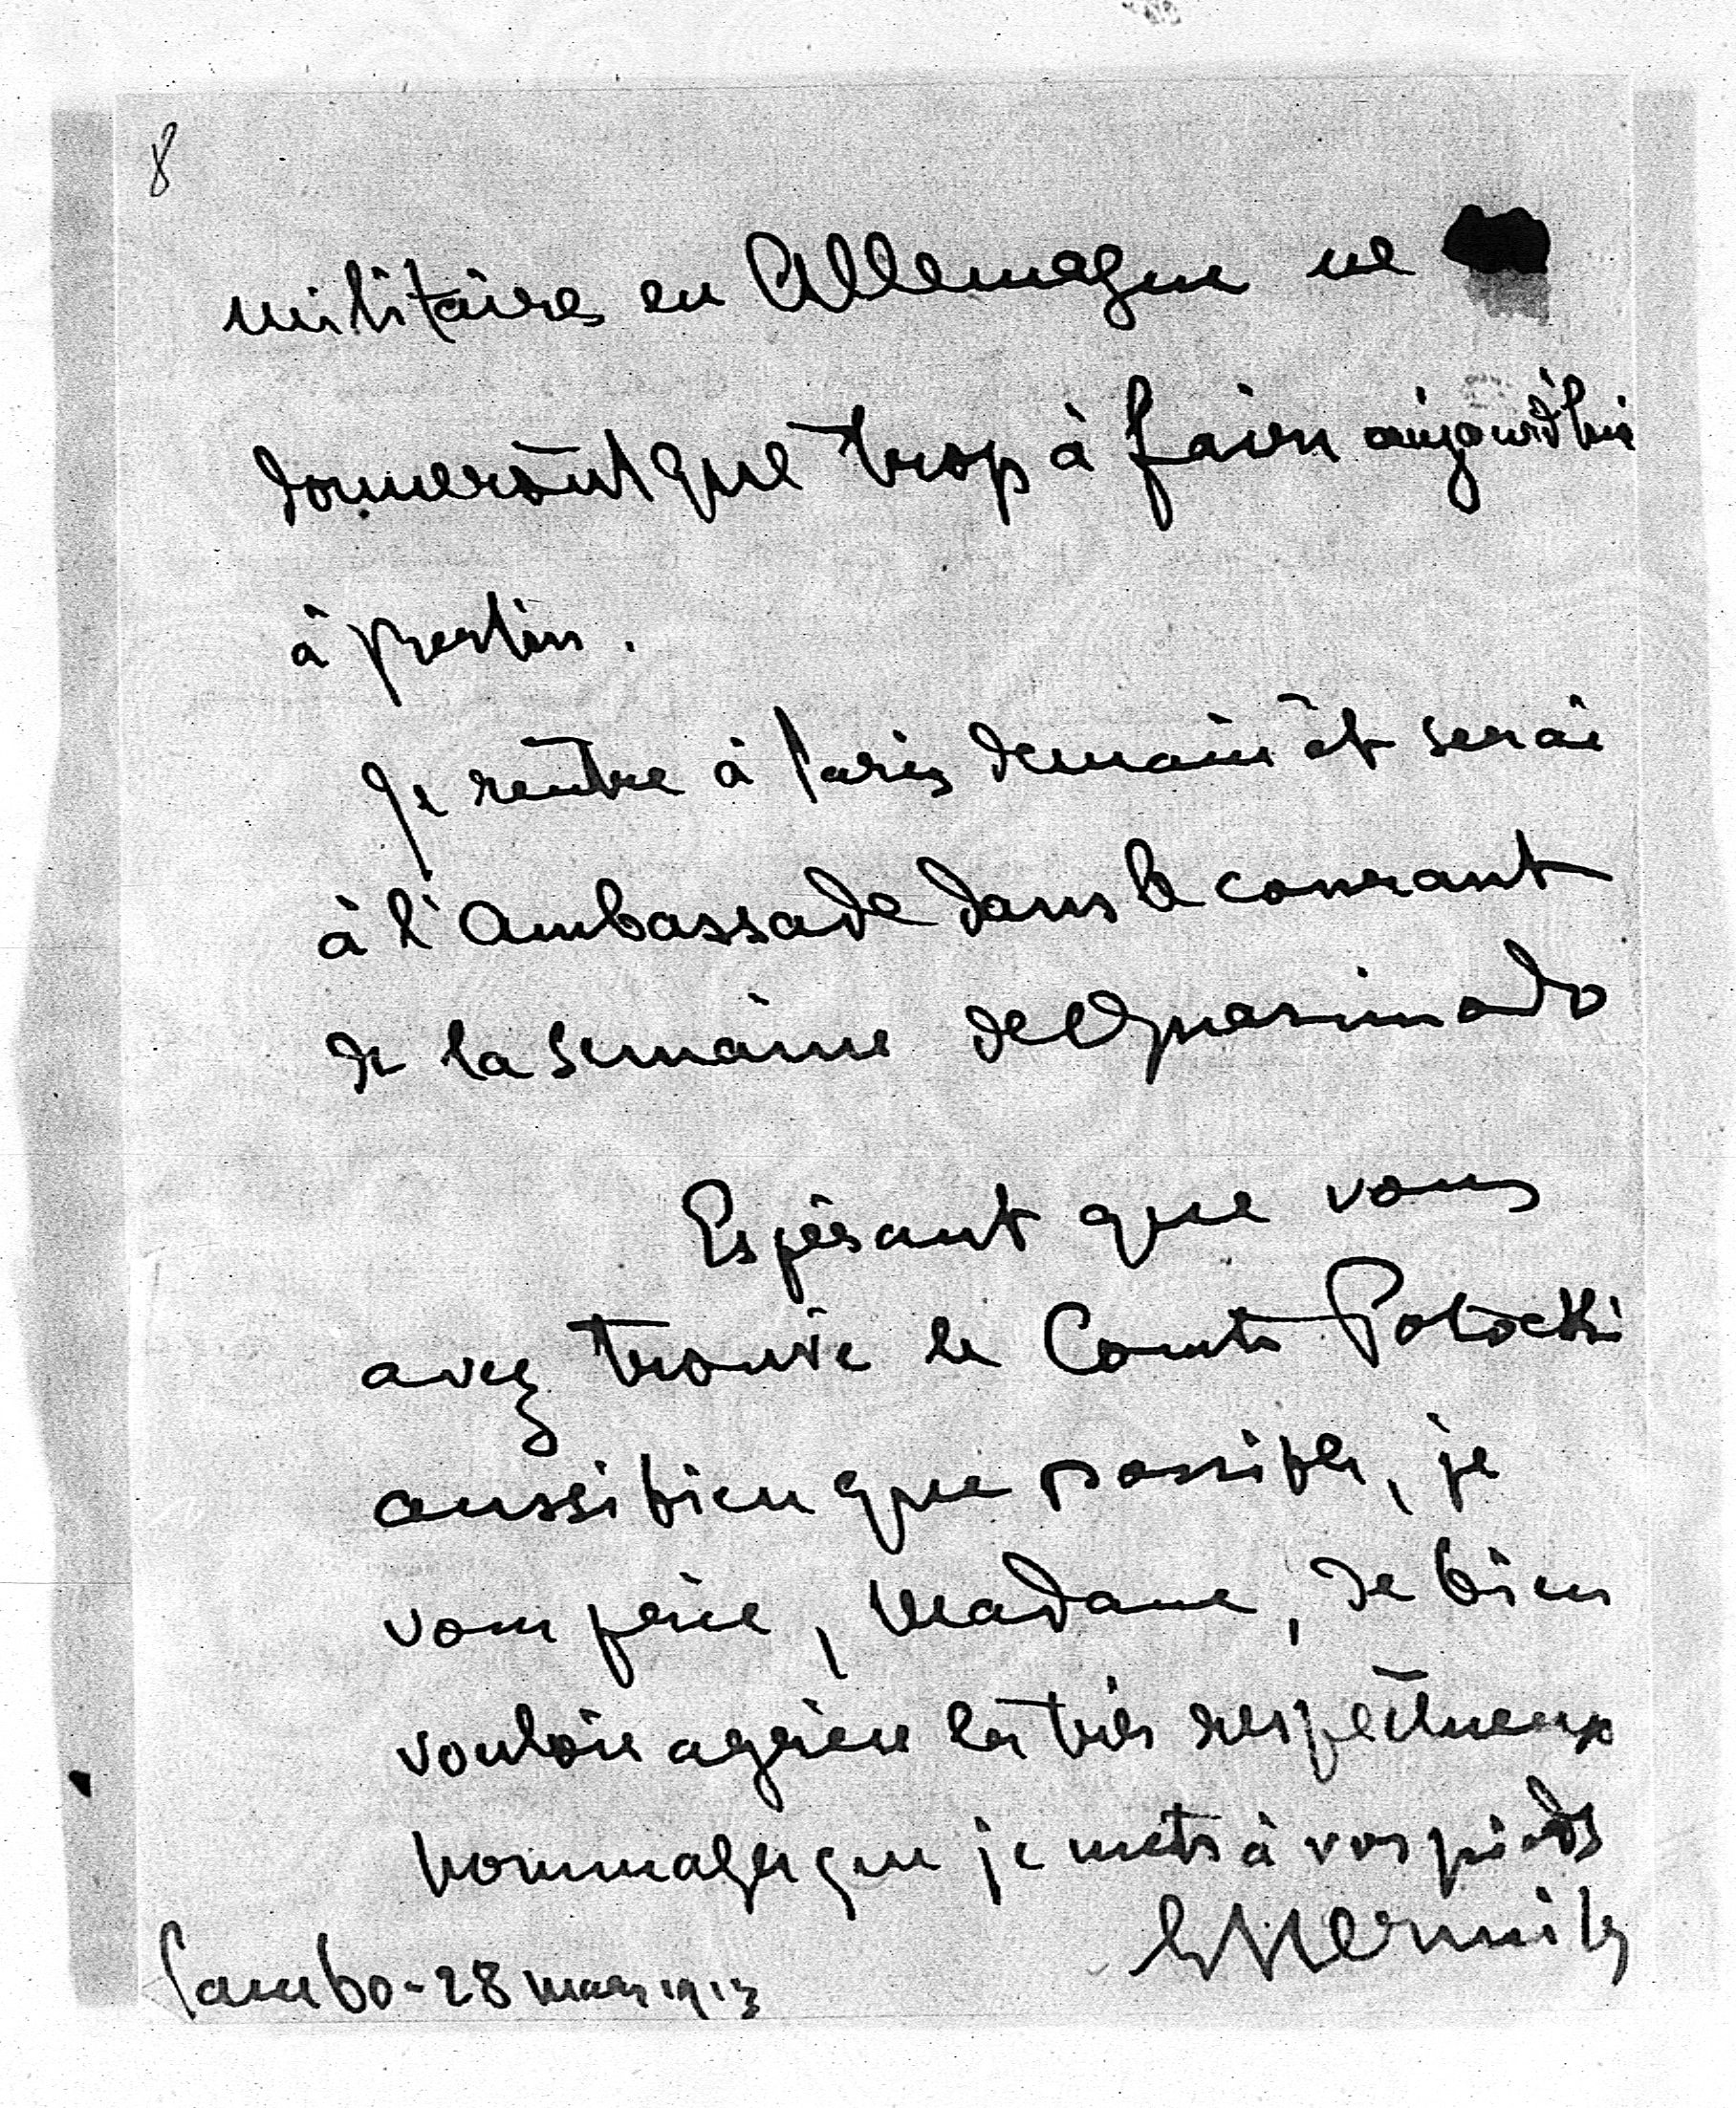 8
militaires en Allemagne ne
donneront que trop à faire aujourd'hui
à Berlin.
Je rentre à Paris demain et serai
à l'Ambassade dans le courant
de la semaine de Quasimodo
Espérant que vous
avez trouvé le Comte Potocki
aussi bien que possible, je
vous prie, Madame, de bien
vouloir agréer les très respectueux
hommages que je mets à vos pieds
Cambo - 28 mars 1913